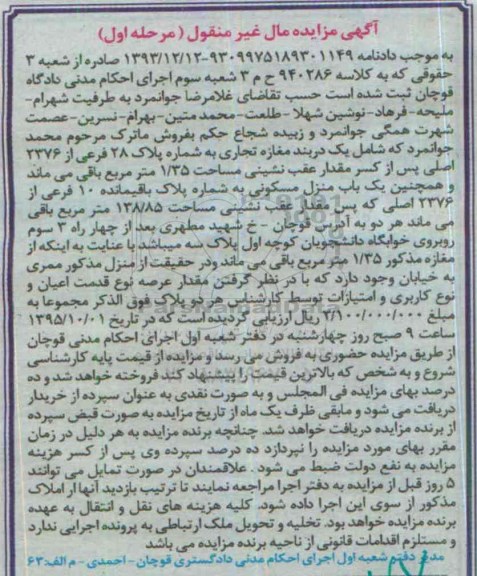 آگهی مزایده مال غیر منقول (مرحله اول)
به موجب دادنامه ۹۳۰۹۹۷۵۱۸۹۳۰۱۱۴۹-۱۳۹۳/۱۲/۱۲ صادره از شعبه ۳
حقوقی که به کلاسه ۹۴۰۲۸۶ ح م ۳ شعبه سوم اجرای احکام مدنی دادگاه
قوچان ثبت شده است حسب تقاضای غلامرضا جوانمرد به طرفیت شهرام-
ملیحه-فرهاد-نوشین شهلا -طلعت-محمد متین-بهرام-نسرین-عصمت
شهرت همگی جوانمرد و زبیده شجاع حکم بفروش ماترک مرحوم محمد
جوانمرد که شامل یک دربند مغازه تجاری به شماره پلاک ۲۸ فرعی از ۲۳۷۶
اصلی پس از کسر مقدار عقب نشینی مساحت ۱/۳۵ متر مربع باقی می ماند
و همچنین یک باب منزل مسکونی به شماره پلاک باقیمانده ۱۰ فرعی از
۲۳۷۶ اصلی که پس عقد عقب نشینی مساحت ۱۳۸/۸۵ متر مربع باقی
می ماند هر دو به آدرس قوچان - خ شهید مطهری بعد از چهار راه ۳ سوم
روبروی خوابگاه دانشجویان کوچه اول پلاک سه میباشد با عنایت به اینکه از
مغازه مذکور ۱/۳۵ متر مربع باقی می ماند ودر حقیقت از منزل مذکور ممری
به خیابان وجود دارد که با در نظر گرفتن مقدار عرصه نوع قدمت اعیان و
نوع کاربری و امتیازات توسط کارشناس هر دو پلاک فوق الذکر مجموعا به
مبلغ ۲/۱۰۰/۰۰۰/۰۰۰ ریال ارزیابی گردیده است که در تاریخ ۱۳۹۵/۱۰/۰۱
ساعت ۹ صبح روز چهارشنبه در دفتر شعبه اول اجرای احکام مدنی قوچان
از طریق مزایده حضوری به فروش می رسد و مزایده از قیمت پایه کارشناسی
شروع و به شخص که بالاترین قیمت را پیشنهاد کند فروخته خواهد شد و ده
درصد بهای مزایده فی المجلس و به صورت نقدی به عنوان سپرده از خریدار
دریافت می شود و مابقی ظرف یک ماه از تاریخ مزایده به صورت قبض سپرده
از برنده مزایده دریافت خواهد شد. چنانچه برنده مزایده به هر دلیل در زمان
مقرر بهای مورد مزایده را نپردازد ده درصد سپرده وی پس از کسر هزینه
مزایده به نفع دولت ضبط می شود . علاقمندان در صورت تمایل می توانند
۵ روز قبل از مزایده به دفتر اجرا مراجعه نمایند تا ترتیب بازدید آنها از املاک
مذکور از سوی این اجرا داده شود. کلیه هزینه های نقل و انتقال به عهده
برنده مزایده خواهد بود. تخلیه و تحویل ملک ارتباطی به پرونده اجرایی ندارد
و مستلزم اقدامات قانونی از ناحیه برنده مزایده می باشد
مدیر دفتر شعبه اول اجرای احکام مدنی دادگستری قوچان - احمدی - م الف:۶۳